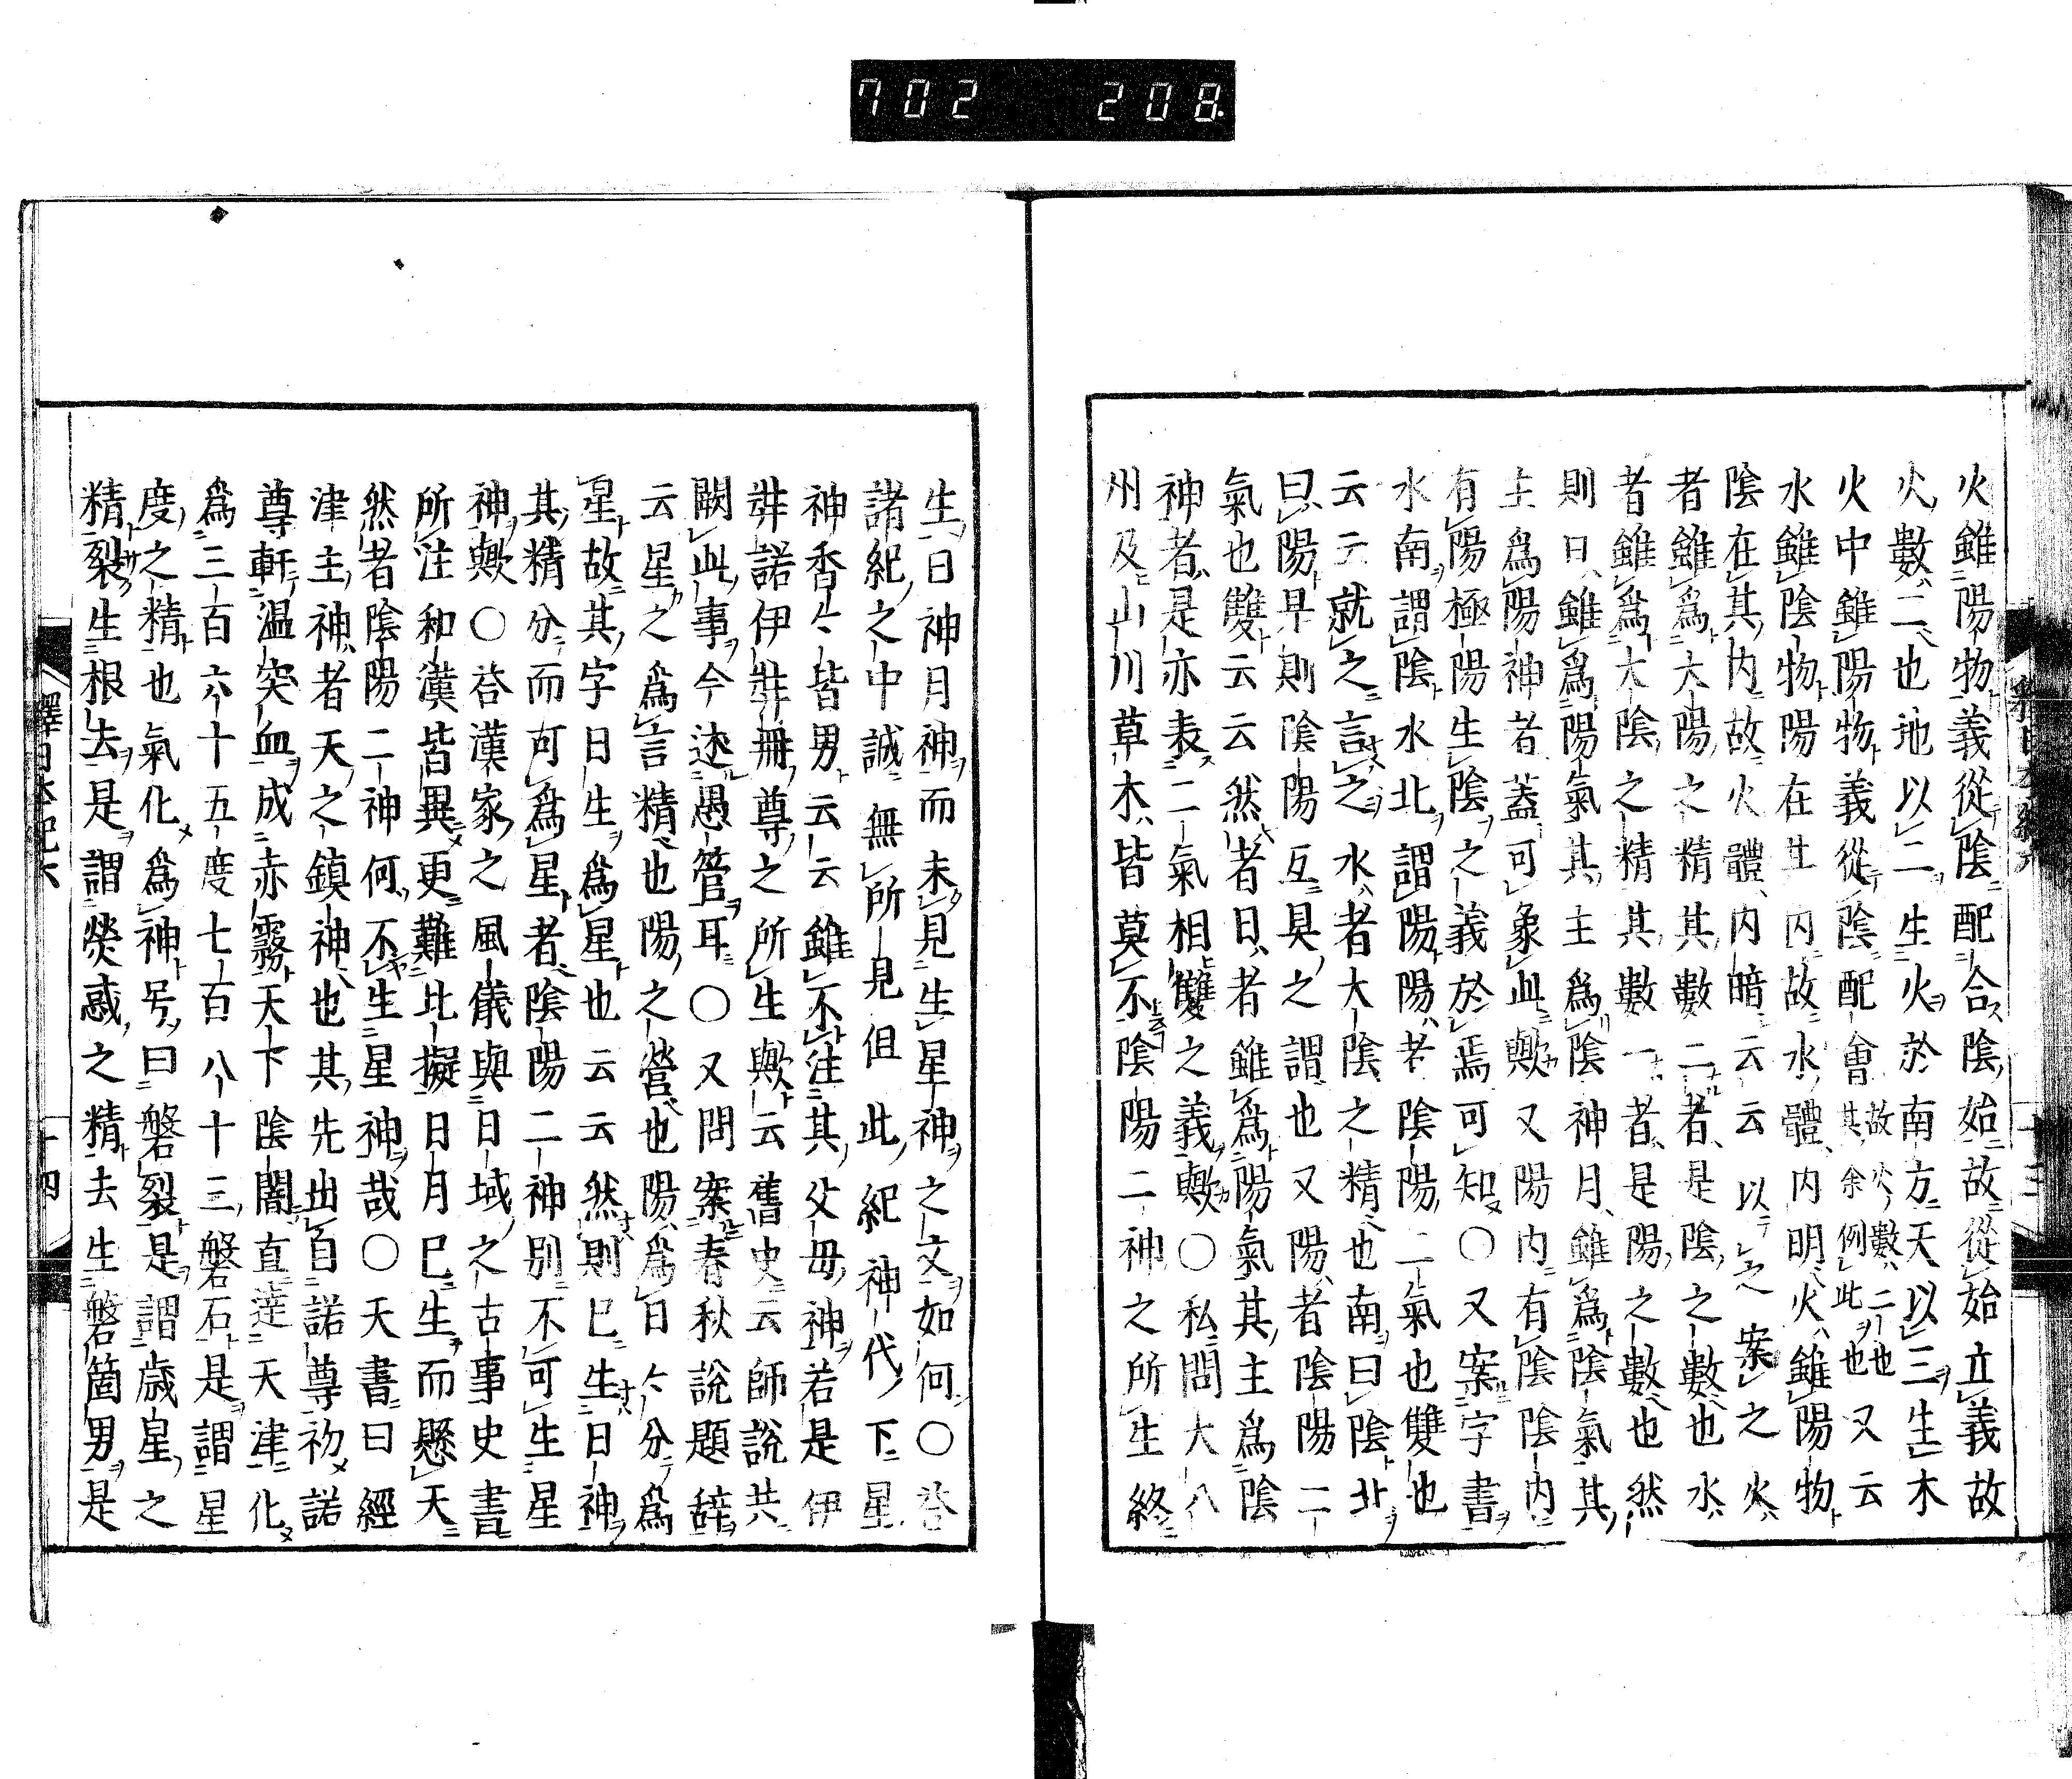 702 208
火雖陽物義從陰配合陰始故從始立義故
火數二也地以二生火於南方天以三生木
火中雖陽物義從陰配會故火數二也其余例此也又云
水雖陰物陽在生内故水體内明火雖陽物
陰在其内故火體内暗云云以之案之火
者雖爲大陽之精其數二者是陰之數也水
者雖爲大陰之精其數一者是陽之數也然
則日雖爲陽氣其主爲陰神月雖爲陰氣其
主爲陽神者蓋可象此歟又陽内有陰陰内
有陽極陽生陰之義於焉可知〇又案字書
水南謂陰水北謂陽陽者陰陽二氣也雙也
云云就之言之水者大陰之精也南曰陰北
曰陽早則陰陽互具之謂也又陽者陰陽二
氣也雙云云然者日者雖爲陽氣其主爲陰
神者是亦表二氣相雙之義歟〇私問大八
州及山川草木皆莫不陰陽二神之所生終
生日神月神而未見生星神之文如何〇答
諸紀之中誠無所見但此紀神代下星
神香々皆男云云雖不注其父母神若是伊
弉諾伊弉冊尊之所生歟云舊史云師說共
闕此事今述愚管耳〇又問案春秋說題辞
云星之爲言精也陽之營也陽爲日々分爲
星故其字日生爲星也云云然則巳生日神
其精分而可爲星者陰陽二神別不可生星
神歟〇答漢家之風儀與日域之古事史書
所注和漢皆異更難比擬日月巳生而懸天
然者陰陽二神何不生星神哉〇天書曰經
津主神者天之鎮神也其先出自諾尊初諾
尊軒温突血成赤霧天下陰闇直達天津化
爲三百六十五度七百八十三磐石是謂星
度之精也氣化爲神号曰磐裂是謂歳星之
精裂生根去是謂熒惑之精去生磐箇男是
釋日本紀六
十四